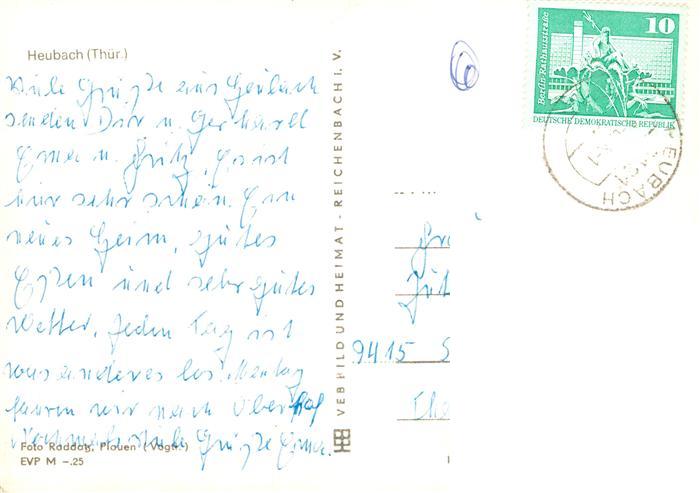 Heubach (Thür.)
Viele Grüße aus Heubach
senden Dir u. Gerhardt
Erna u. Fritz, Es ist
hier sehr schön. Ein
neues Heim, gutes
Essen und sehr gutes
Wetter. Jeden Tag ist
was anderes los. Montag
fahren wir nach Oberhof
Nochmals viele Grüße Erna.
Foto Raddatz, Plauen (Vogtl.)
EVP M -.25
VEB BILD UND HEIMAT - REICHENBACH I. V.
6
10
Berlin, Rathausstraße
DEUTSCHE DEMOKRATISCHE REPUBLIK
HEUBACH
9415 S